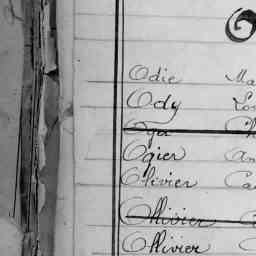 O
Odie Ma
Ody Lo
Oger Ch
Ogier An
Olivier Ca
Ollivier C
Ollivier C